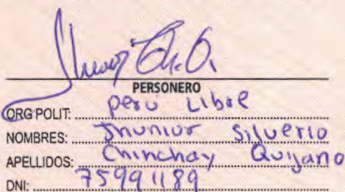 PERSONERO
ORG POLIT: perú Libre
NOMBRES: Jhunior Silverio
APELLIDOS: Chinchay Quijano
DNI: 75991189